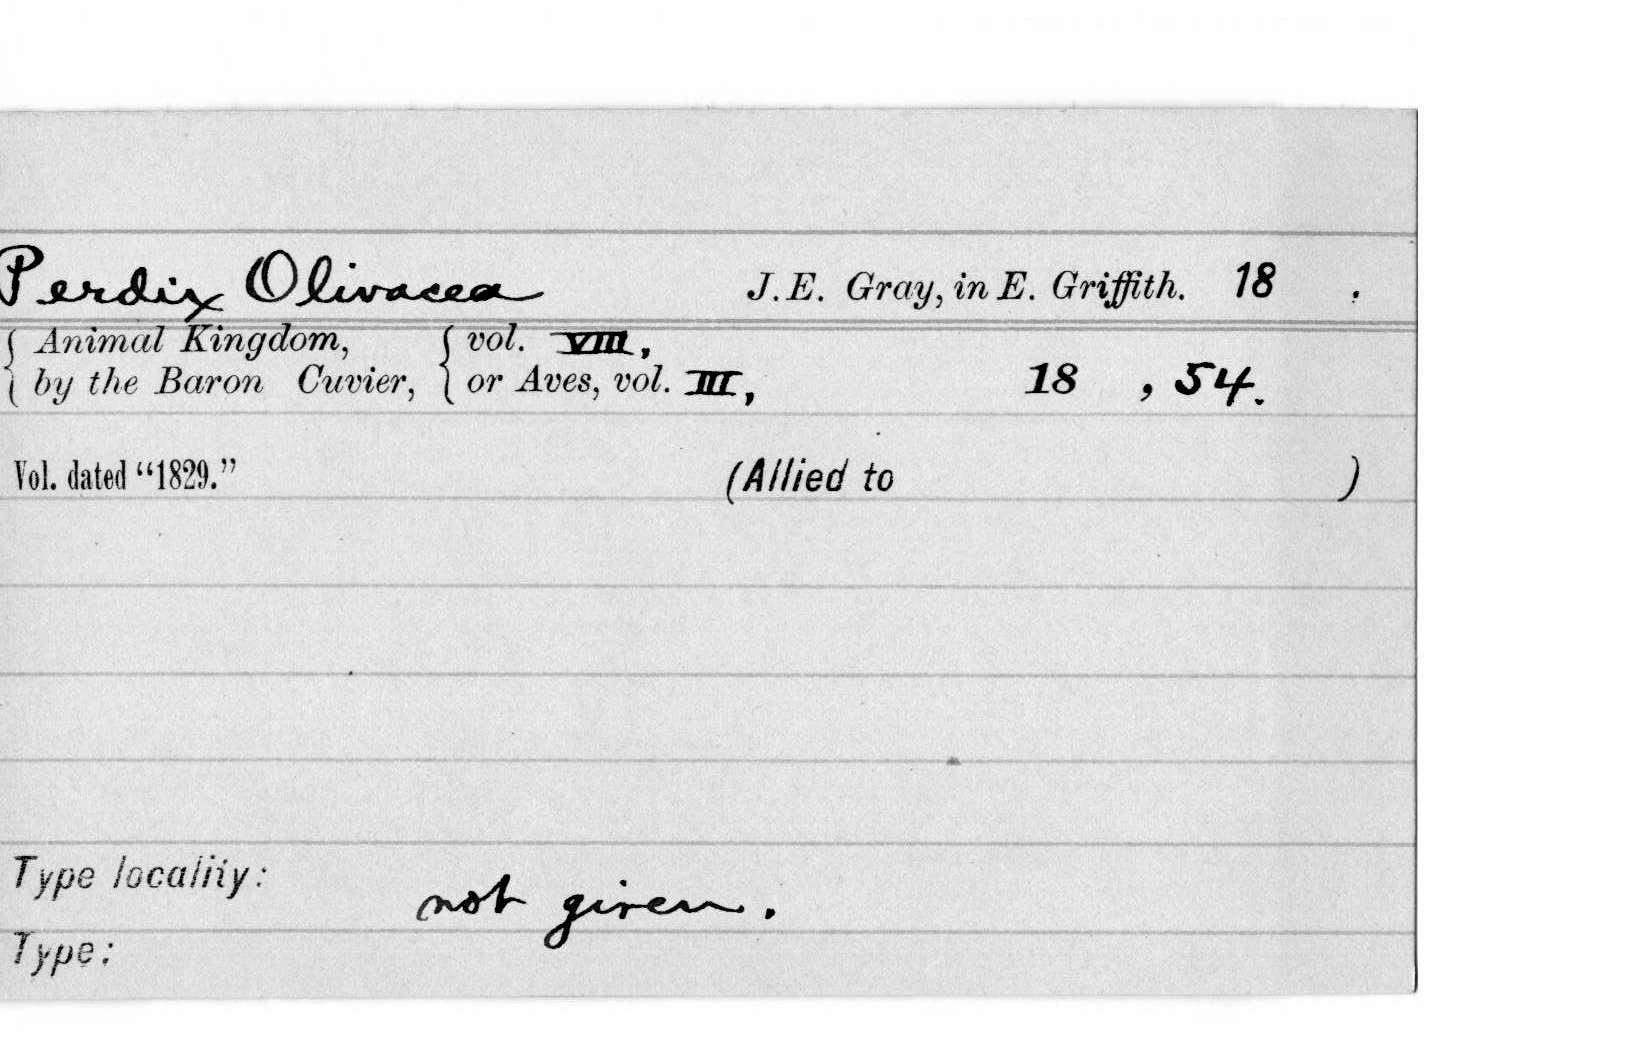 Perdix Olivacea J. E. Gray, in E. Griffith. 18 .
{ Animal Kingdom, { vol. VIII,
{ by the Baron Cuvier, { or Aves, vol. III, 18 , 54.
Vol. dated “1829.” (Allied to )
Type locality: not given.
Type: